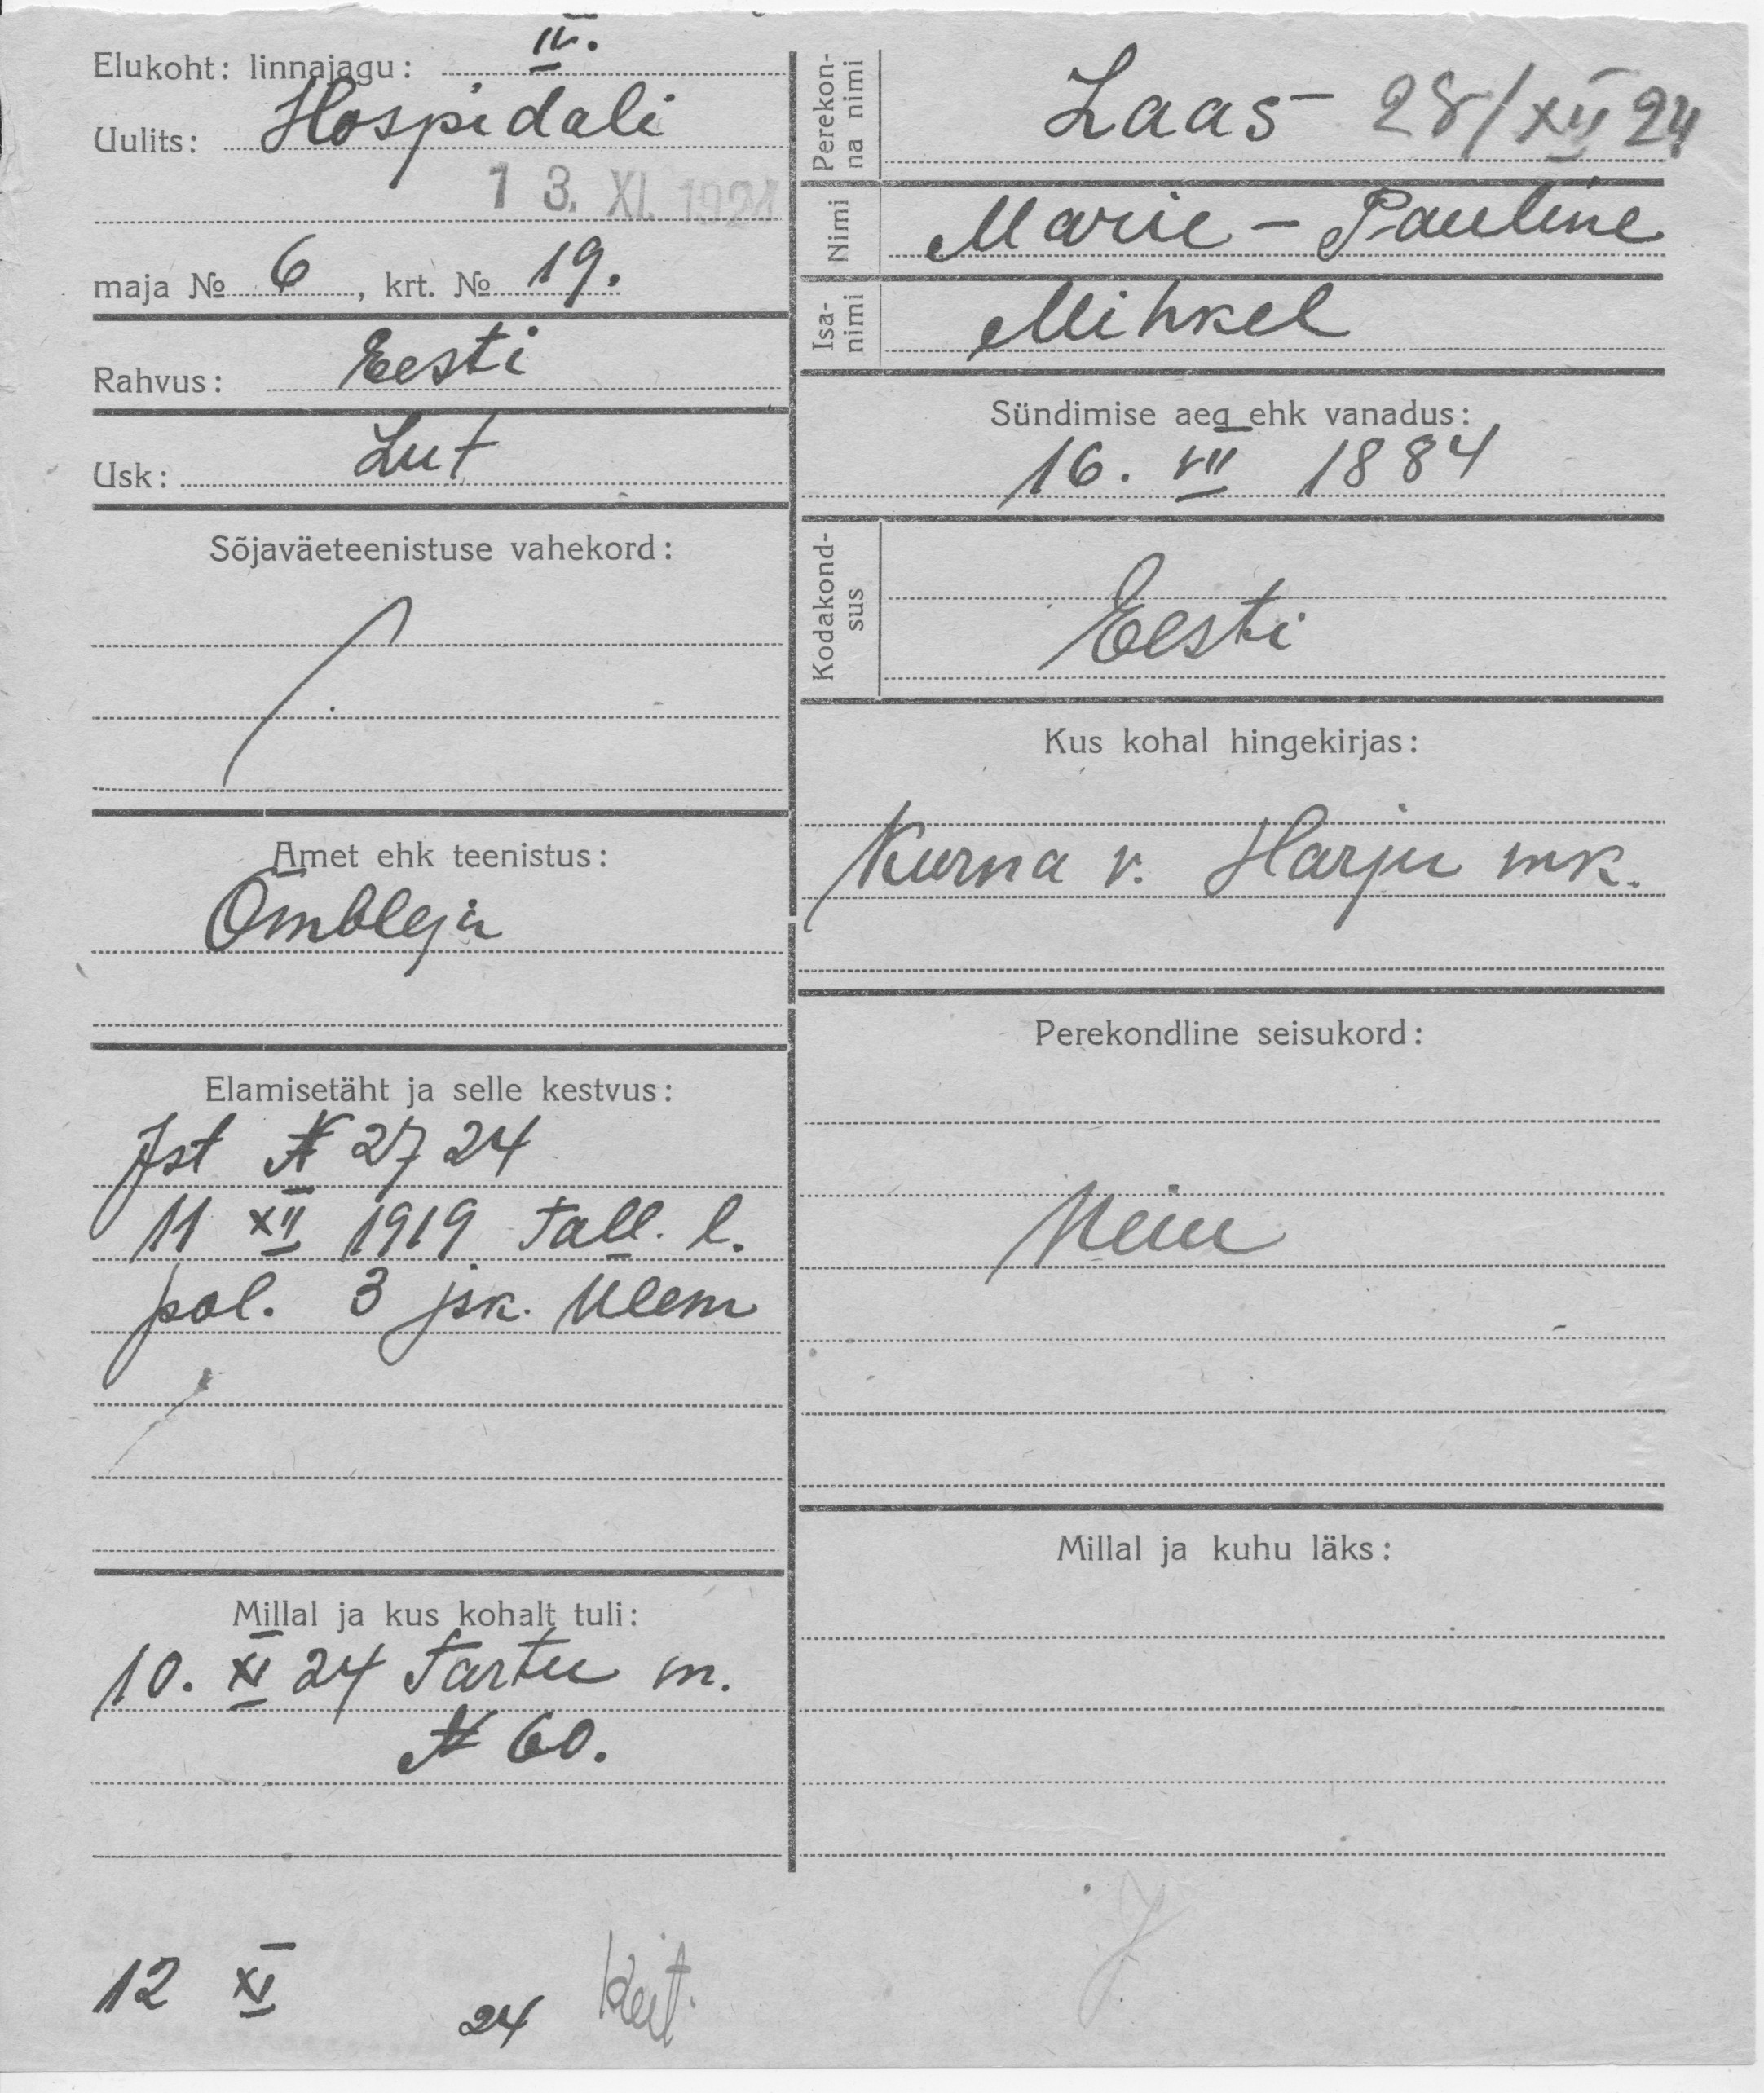 Elukoht: linnajagu: III.
Uulits: Hospidali
13. XI. 1924
maja № 6, krt. № 19.
Rahvus: Eesti
Usk: Lut
Sõjaväeteenistuse vahekord:
Amet ehk teenistus:
Õmbleja
Elamisetäht ja selle kestvus:
Ist N 2724
11 XII 1919 Tall. l.
pol. 3 jsk. ülem
Millal ja kus kohalt tuli:
10. XI 24 Tartu m.
N 60.
12 XI 24
Perekonna nimi
Laas 28/XII 24
Nimi
Marie-Pauline
Isa-nimi
Mihkel
Sündimise aeg ehk vanadus:
16. VII 1884
Kodakond-sus
Eesti
Kus kohal hingekirjas:
Kurna v. Harju mk.
Perekondline seisukord:
Neiu
Millal ja kuhu läks: